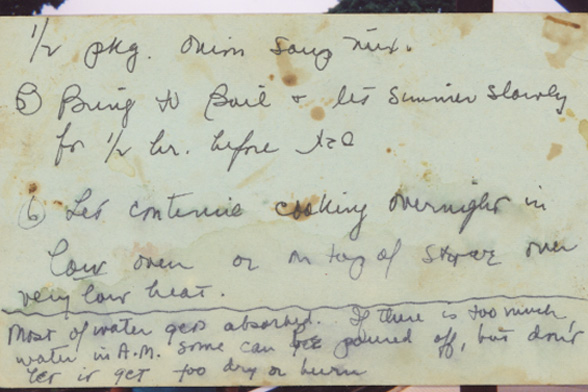 1/2 pkg. Onion Soup mix.
5) Bring to Boil + let simmer slowly
for 1/2 hr. before
6) Let continue cooking overnight in
low oven or on top of stove over
very low heat.
Most of water gets absorbed. If there is too much
water in A.M. some can be poured off, but don't
let it get too dry or burn